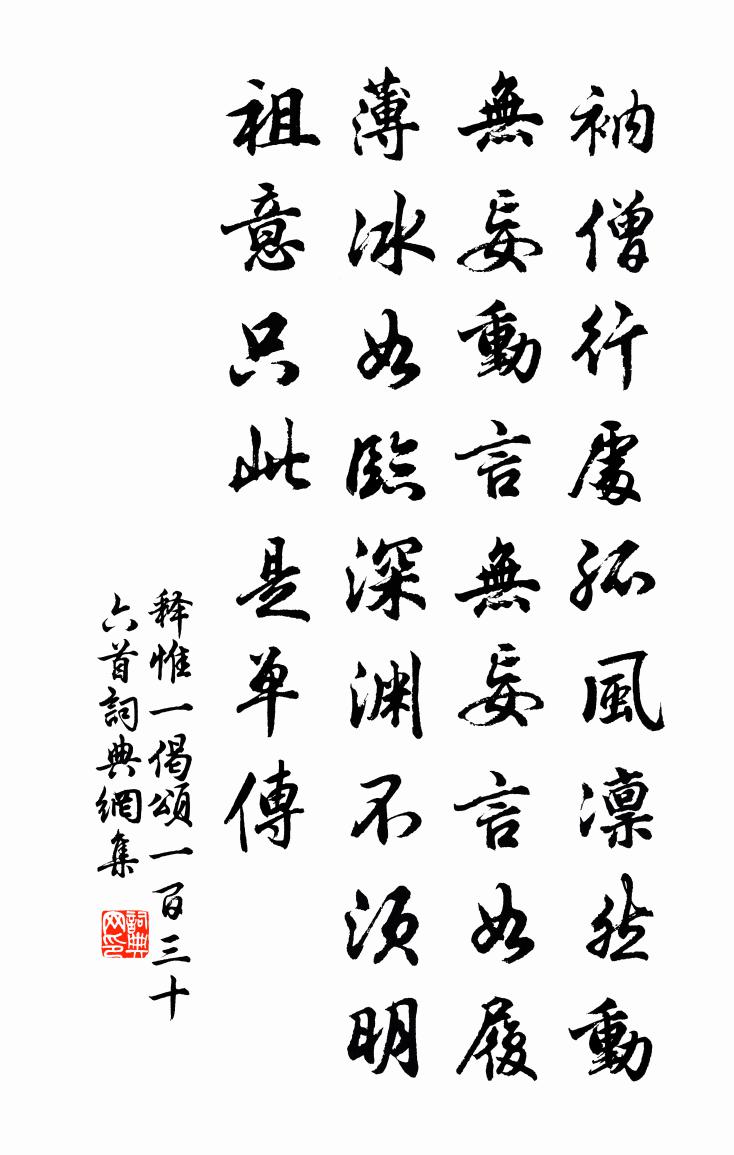 衲僧行處孤風凛然動
無妄動言無妄言如履
薄冰如臨深淵不須明
祖意只此是单傳
释惟一偈頌一百三十
六首詞典網集
詞典网印